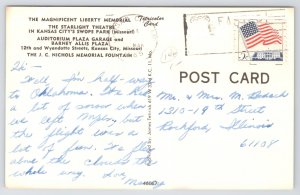 THE MAGNIFICENT LIBERTY MEMORIAL
THE STARLIGHT THEATRE
IN KANSAS CITY'S SWOPE PARK (Missouri)
AUDITORIUM PLAZA GARAGE and
BARNEY ALLIS PLAZA
12th and Wyandotte Streets, Kansas City, Missouri
THE J. C. NICHOLS MEMORIAL FOUNTAIN
POST CARD
Hi -
Well I'm half-way
to Oklahoma.
a lot of snow when
we left but
the flight was a
lot of fun.
above the clouds the
whole way. Love
Mr. & Mrs. M.
1310-19th Street
Rockford, Illinois
61108